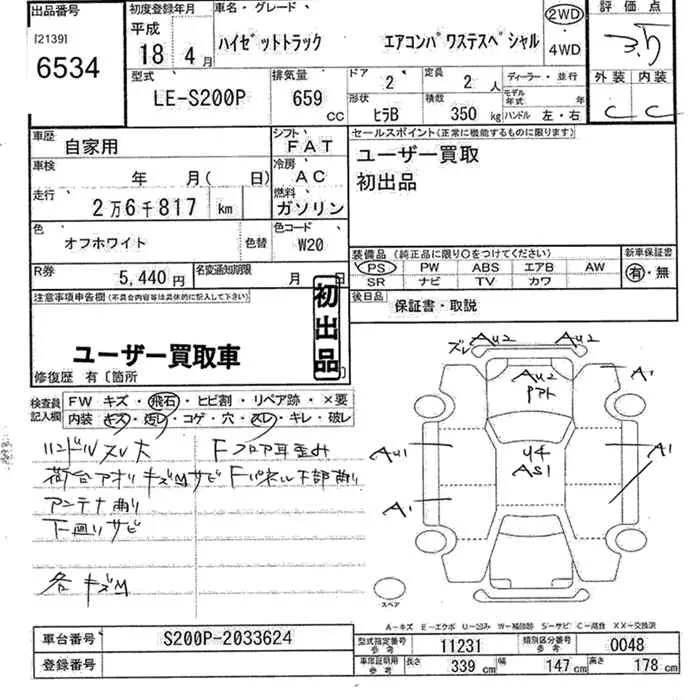 出品番号
[2139]
6534
初度登録年月
平成
18 4月
車名・グレード
ハイゼットトラック エアコンパワステスペシャル
2WD
4WD
評価点
3.5
外装 内装
C C
型式
LE-S200P
排気量
659 cc
ドア 2
定員 2 人
形状 ヒラB
積数 350 kg
ディーラー・並行
モデル年式 年
ハンドル 左・右
車歴 自家用
シフト FAT
車検 年 月( 日)
冷房 AC
走行 2万6千817 km
燃料 ガソリン
色 オフホワイト 色替
色コード W20
R券 5,440円
名変通知期限 月 日
セールスポイント(正常に機能するものに限ります)
ユーザー買取
初出品
装備品 (純正品に限り○をつけてください)
PS PW ABS エアB AW
SR ナビ TV カワ
新車保証書
有・無
後日品 保証書・取説
注意事項申告欄(不具合内容等は具体的に記入して下さい)
ユーザー買取車
初出品
修復歴 有〔箇所 〕
検査員記入欄
FW キズ・飛石・ヒビ割・リペア跡・×要
内装 キズ・汚レ・コゲ・穴・スレ・キレ・破レ
ハンドルスレ大
荷台アオリキズMサビ
アンテナ曲り
下廻りサビ
各キズM
Fフロア耳歪み
Fパネル下部曲り
ズレ AU2 AU2
A1
AU2
Pアト
AU1
U4
AS1
A1
A1
スペア
A-キズ E-エクボ U-凹み W-補修跡 S-サビ C-腐食 XX-交換済
車台番号 S200P-2033624
登録番号
型式指定番号 参考 11231
類別区分番号 参考 0048
車庫証明用 参考
長さ 339 cm 幅 147 cm 高さ 178 cm